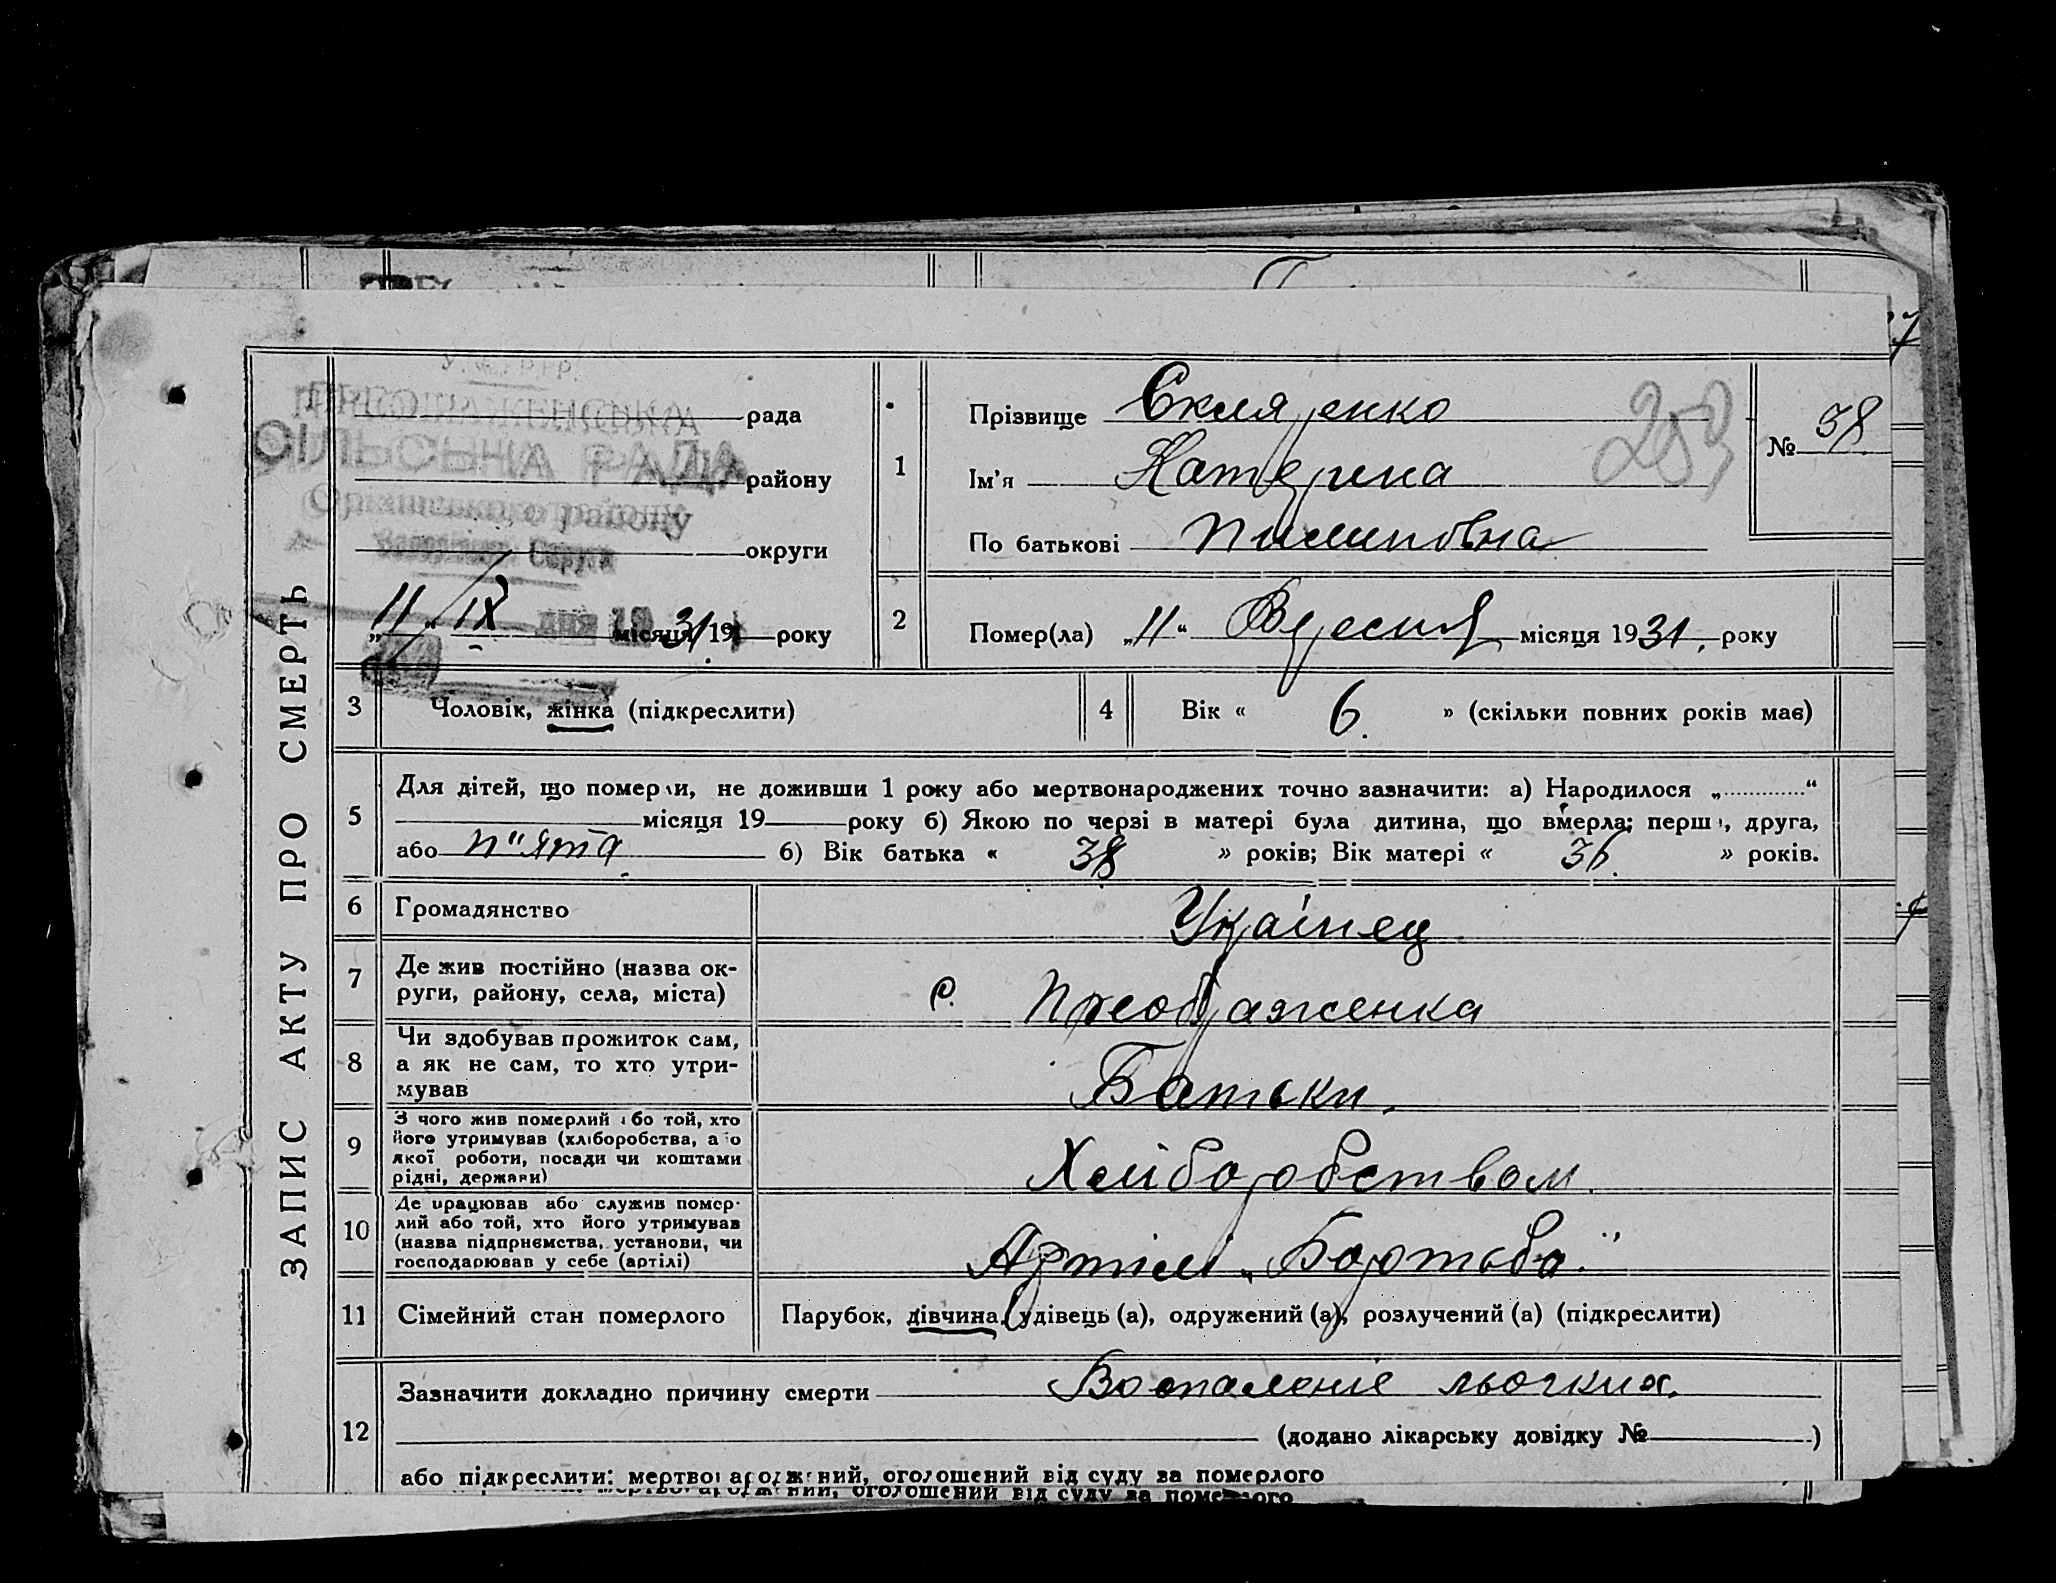 ЗАПИС АКТУ ПРО СМЕРТЬ
рада
СІЛЬСЬКА РАДА
району
району
округи
"11" IX місяця 1931 року
1
Прізвище Скляренко
253
№ 38
Ім'я Катерина
По батькові Пилиповна
2
Помер(ла) „11“ Вересня місяця 1931. року
3
Чоловік, жінка (підкреслити)
4
Вік « 6. » (скільки повних років має)
5
Для дітей, що померли, не доживши 1 року або мертвонароджених точно зазначити: а) Народилося „............“
місяця 19 року б) Якою по черзі в матері була дитина, що вмерла; перша, друга,
або п"ята. б) Вік батька « 38 » років; Вік матері « 36. » років.
6
Громадянство
Українец
7
Де жив постійно (назва ок-
руги, району, села, міста)
с. Преображенка
8
Чи здобував прожиток сам,
а як не сам, то хто утри-
мував
Батьки.
9
З чого жив померлий або той, хто
його утримував (хліборобства, або
якої роботи, посади чи коштами
рідні, держави)
Хліборобством.
10
Де працював або служив помер-
лий або той, хто його утримував
(назва підприємства, установи, чи
господарював у себе (артілі)
Артілі „Боротьба."
11
Сімейний стан померлого
Парубок, дівчина, удівець (а), одружений (а), розлучений (а) (підкреслити)
12
Зазначити докладно причину смерти Воспаленіє льогких.
(додано лікарську довідку № )
або підкреслити: мертвонароджений, оголошений від суду за померлого
оголошений від суду за померлого